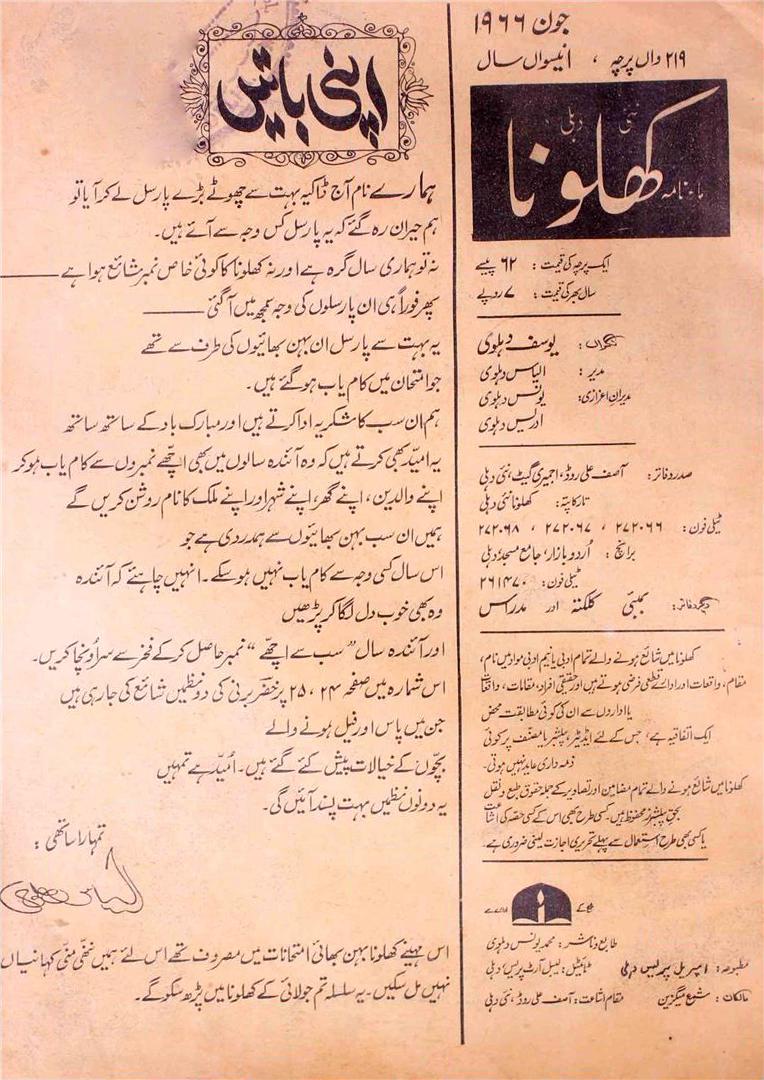 جون ۱۹۶۶
۲۱۹ واں پرچہ ، انیسواں سال
نئی دہلی
ماہ نامہ کھلونا
ایک پرچہ کی قیمت : ۶۲ پیسے
سال بھر کی قیمت : ۷ روپے
نگراں : یوسف دہلوی
مدیر : الیاس دہلوی
مدیرانِ اعزازی : یونس دہلوی
ادریس دہلوی
صدر دفاتر : آصف علی روڈ، اجمیری گیٹ، نئی دہلی
تار کا پتہ : کھلونا نئی دہلی
ٹیلی فون : ۲۷۲۰۶۶ ، ۲۷۲۰۶۷ ، ۲۷۲۰۶۸
برانچ : اُردو بازار، جامع مسجد دہلی
ٹیلی فون : ۲۶۱۴۷۰
دیگر دفاتر : بمبئی کلکتہ اور مدراس
کھلونا میں شائع ہونے والے تمام ادبی یا نیم ادبی مواد میں نام،
مقام، واقعات اور ادارے قطعی فرضی ہوتے ہیں اور حقیقی افراد، مقامات، واقعات
یا اداروں سے ان کی کوئی مطابقت محض
ایک اتفاقیہ ہے، جس کے لئے ایڈیٹر، پبلشر یا مصنف پر کوئی
ذمہ داری عاید نہیں ہوتی۔
کھلونا میں شائع ہونے والے تمام مضامین اور تصاویر کے جملہ حقوق طبع و نقل
بحق پبلشرز محفوظ ہیں۔ کسی طرح بھی اس کے کسی حصہ کی اشاعت
یا کسی بھی طرح استعمال سے پہلے تحریری اجازت لینی ضروری ہے۔
طابع و ناشر : محمد یونس دہلوی
مطبوعہ : امپریل پریس دہلی ٹائیٹل : لیبل آرٹ پریس دہلی
مالکان : شمع میگزین مقام اشاعت : آصف علی روڈ، نئی دہلی
اپنی باتیں
ہمارے نام آج ڈاکیہ بہت سے چھوٹے بڑے پارسل لے کر آیا تو
ہم حیران رہ گئے کہ یہ پارسل کس وجہ سے آئے ہیں۔
نہ تو ہماری سال گرہ ہے اور نہ کھلونا کا کوئی خاص نمبر شائع ہوا ہے ——
پھر فوراً ہی ان پارسلوں کی وجہ سمجھ میں آگئی ——
یہ بہت سے پارسل ان بہن بھائیوں کی طرف سے تھے
جو امتحان میں کام یاب ہو گئے ہیں۔
ہم ان سب کا شکریہ ادا کرتے ہیں اور مبارک باد کے ساتھ ساتھ
یہ امیّد بھی کرتے ہیں کہ وہ آئندہ سالوں میں بھی اچھّے نمبروں سے کام یاب ہو کر
اپنے والدین، اپنے گھر، اپنے شہر اور اپنے ملک کا نام روشن کریں گے
ہمیں ان سب بہن بھائیوں سے ہمدردی ہے جو
اس سال کسی وجہ سے کام یاب نہیں ہو سکے۔ انہیں چاہئے کہ آئندہ
وہ بھی خوب دل لگا کر پڑھیں
اور آئندہ سال ”سب سے اچھّے“ نمبر حاصل کر کے فخر سے سر اُونچا کریں۔
اس شمارہ میں صفحہ ۲۴، ۲۵ پر خضر برنی کی دو نظمیں شائع کی جا رہی ہیں
جن میں پاس اور فیل ہونے والے
بچّوں کے خیالات پیش کئے گئے ہیں۔ اُمیّد ہے تمہیں
یہ دونوں نظمیں بہت پسند آئیں گی۔
تمہارا ساتھی :
الیاس دہلوی
اس مہینے کھلونا بہن بھائی امتحانات میں مصروف تھے اس لئے ہمیں ننھّی منّی کہانیاں
نہیں مل سکیں۔ یہ سلسلہ تم جولائی کے کھلونا میں پڑھ سکو گے۔